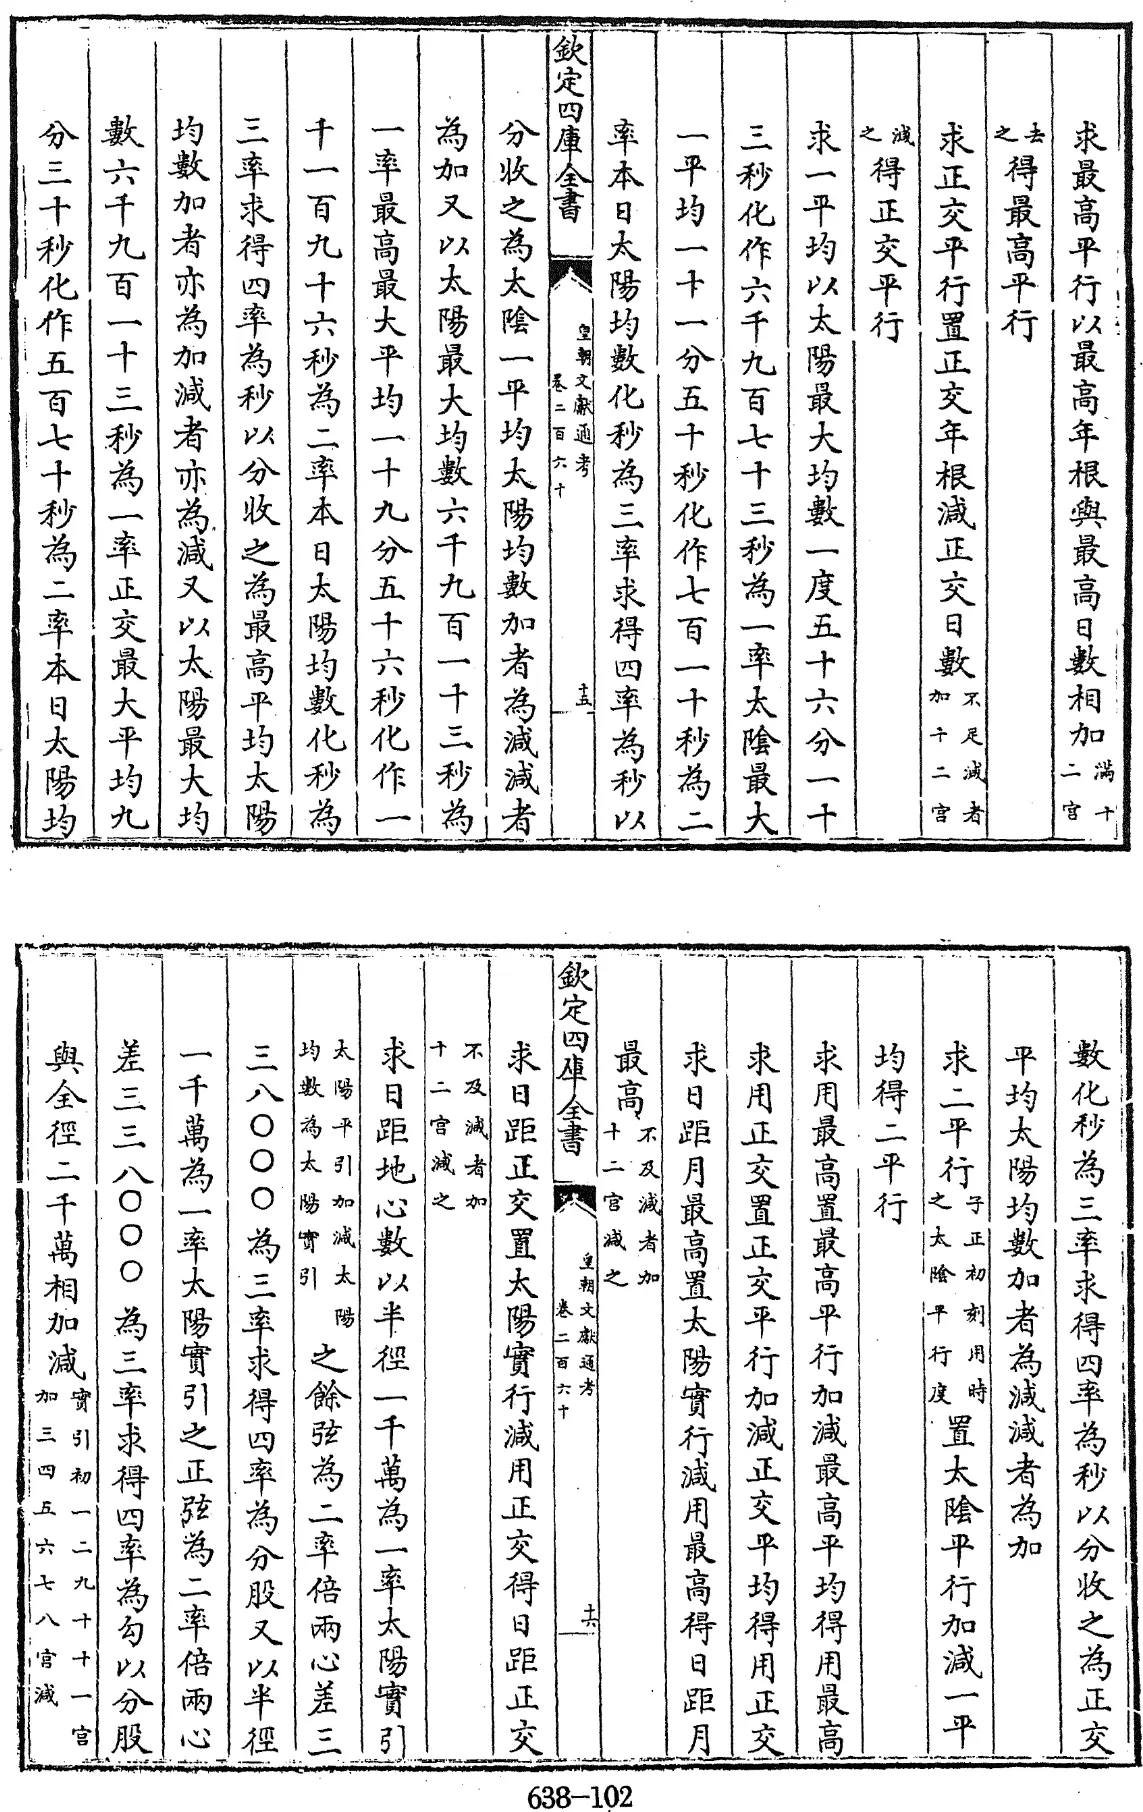 求最高平行以最高年根與最高日數相加滿十二宫
去之得最高平行
求正交平行置正交年根減正交日數不足減者加十二宫
減之得正交平行
求一平均以太陽最大均數一度五十六分一十
三秒化作六千九百七十三秒為一率太陰最大
一平均一十一分五十秒化作七百一十秒為二
率本日太陽均數化秒為三率求得四率為秒以
欽定四庫全書
皇朝文獻通考
卷二百六十
十五
分收之為太陰一平均太陽均數加者為減減者
為加又以太陽最大均數六千九百一十三秒為
一率最高最大平均一十九分五十六秒化作一
千一百九十六秒為二率本日太陽均數化秒為
三率求得四率為秒以分收之為最高平均太陽
均數加者亦為加減者亦為減又以太陽最大均
數六千九百一十三秒為一率正交最大平均九
分三十秒化作五百七十秒為二率本日太陽均
數化秒為三率求得四率為秒以分收之為正交
平均太陽均數加者為減減者為加
求二平行子正初刻用時之太陰平行度置太陰平行加減一平
均得二平行
求用最高置最高平行加減最高平均得用最高
求用正交置正交平行加減正交平均得用正交
求日距月最高置太陽實行減用最高得日距月
最高不及減者加十二宫減之
欽定四庫全書
皇朝文獻通考
卷二百六十
十六
求日距正交置太陽實行減用正交得日距正交
不及減者加十二宫減之
求日距地心數以半徑一千萬為一率太陽實引
太陽平引加減太陽均數為太陽實引之餘弦為二率倍兩心差三
三八〇〇〇為三率求得四率為分股又以半徑
一千萬為一率太陽實引之正弦為二率倍兩心
差三三八〇〇〇為三率求得四率為勾以分股
與全徑二千萬相加減實引初一二九十十一宫加三四五六七八宫減
638-102